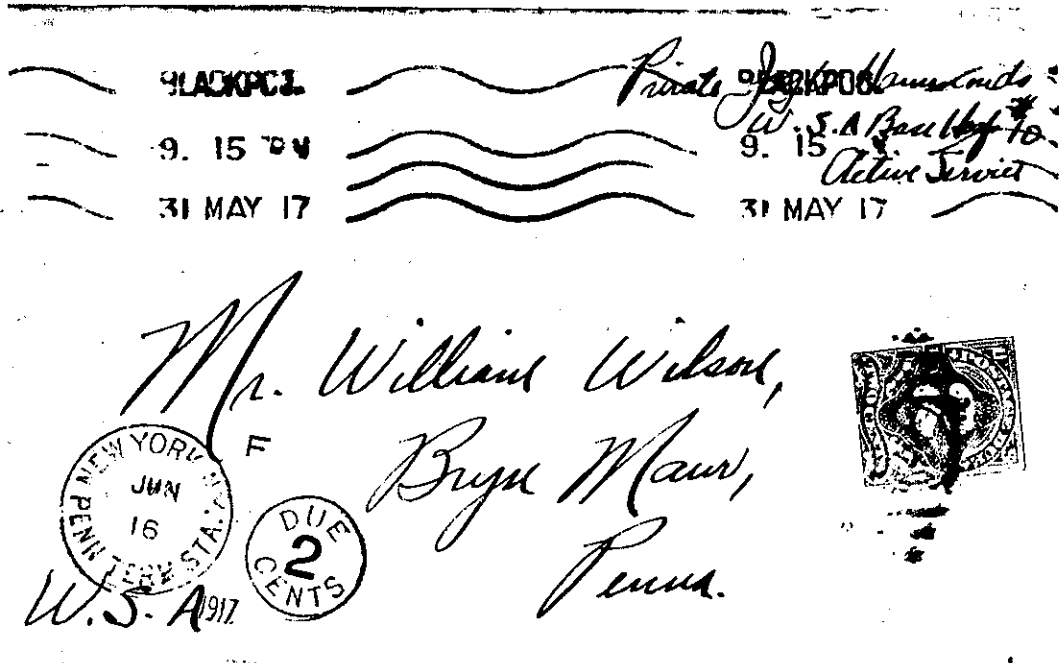 BLACKPOOL
9. 15 PM
31 MAY 17
BLACKPOOL
9. 15
31 MAY 17
Private
U.S.A Base Hosp #10
Active Service
Mr. William Wilson,
Bryn Mawr,
Penna.
U.S. A
F
NEW YORK, N.Y.
PENN TERM STA.
JUN
16
1917
DUE
2
CENTS